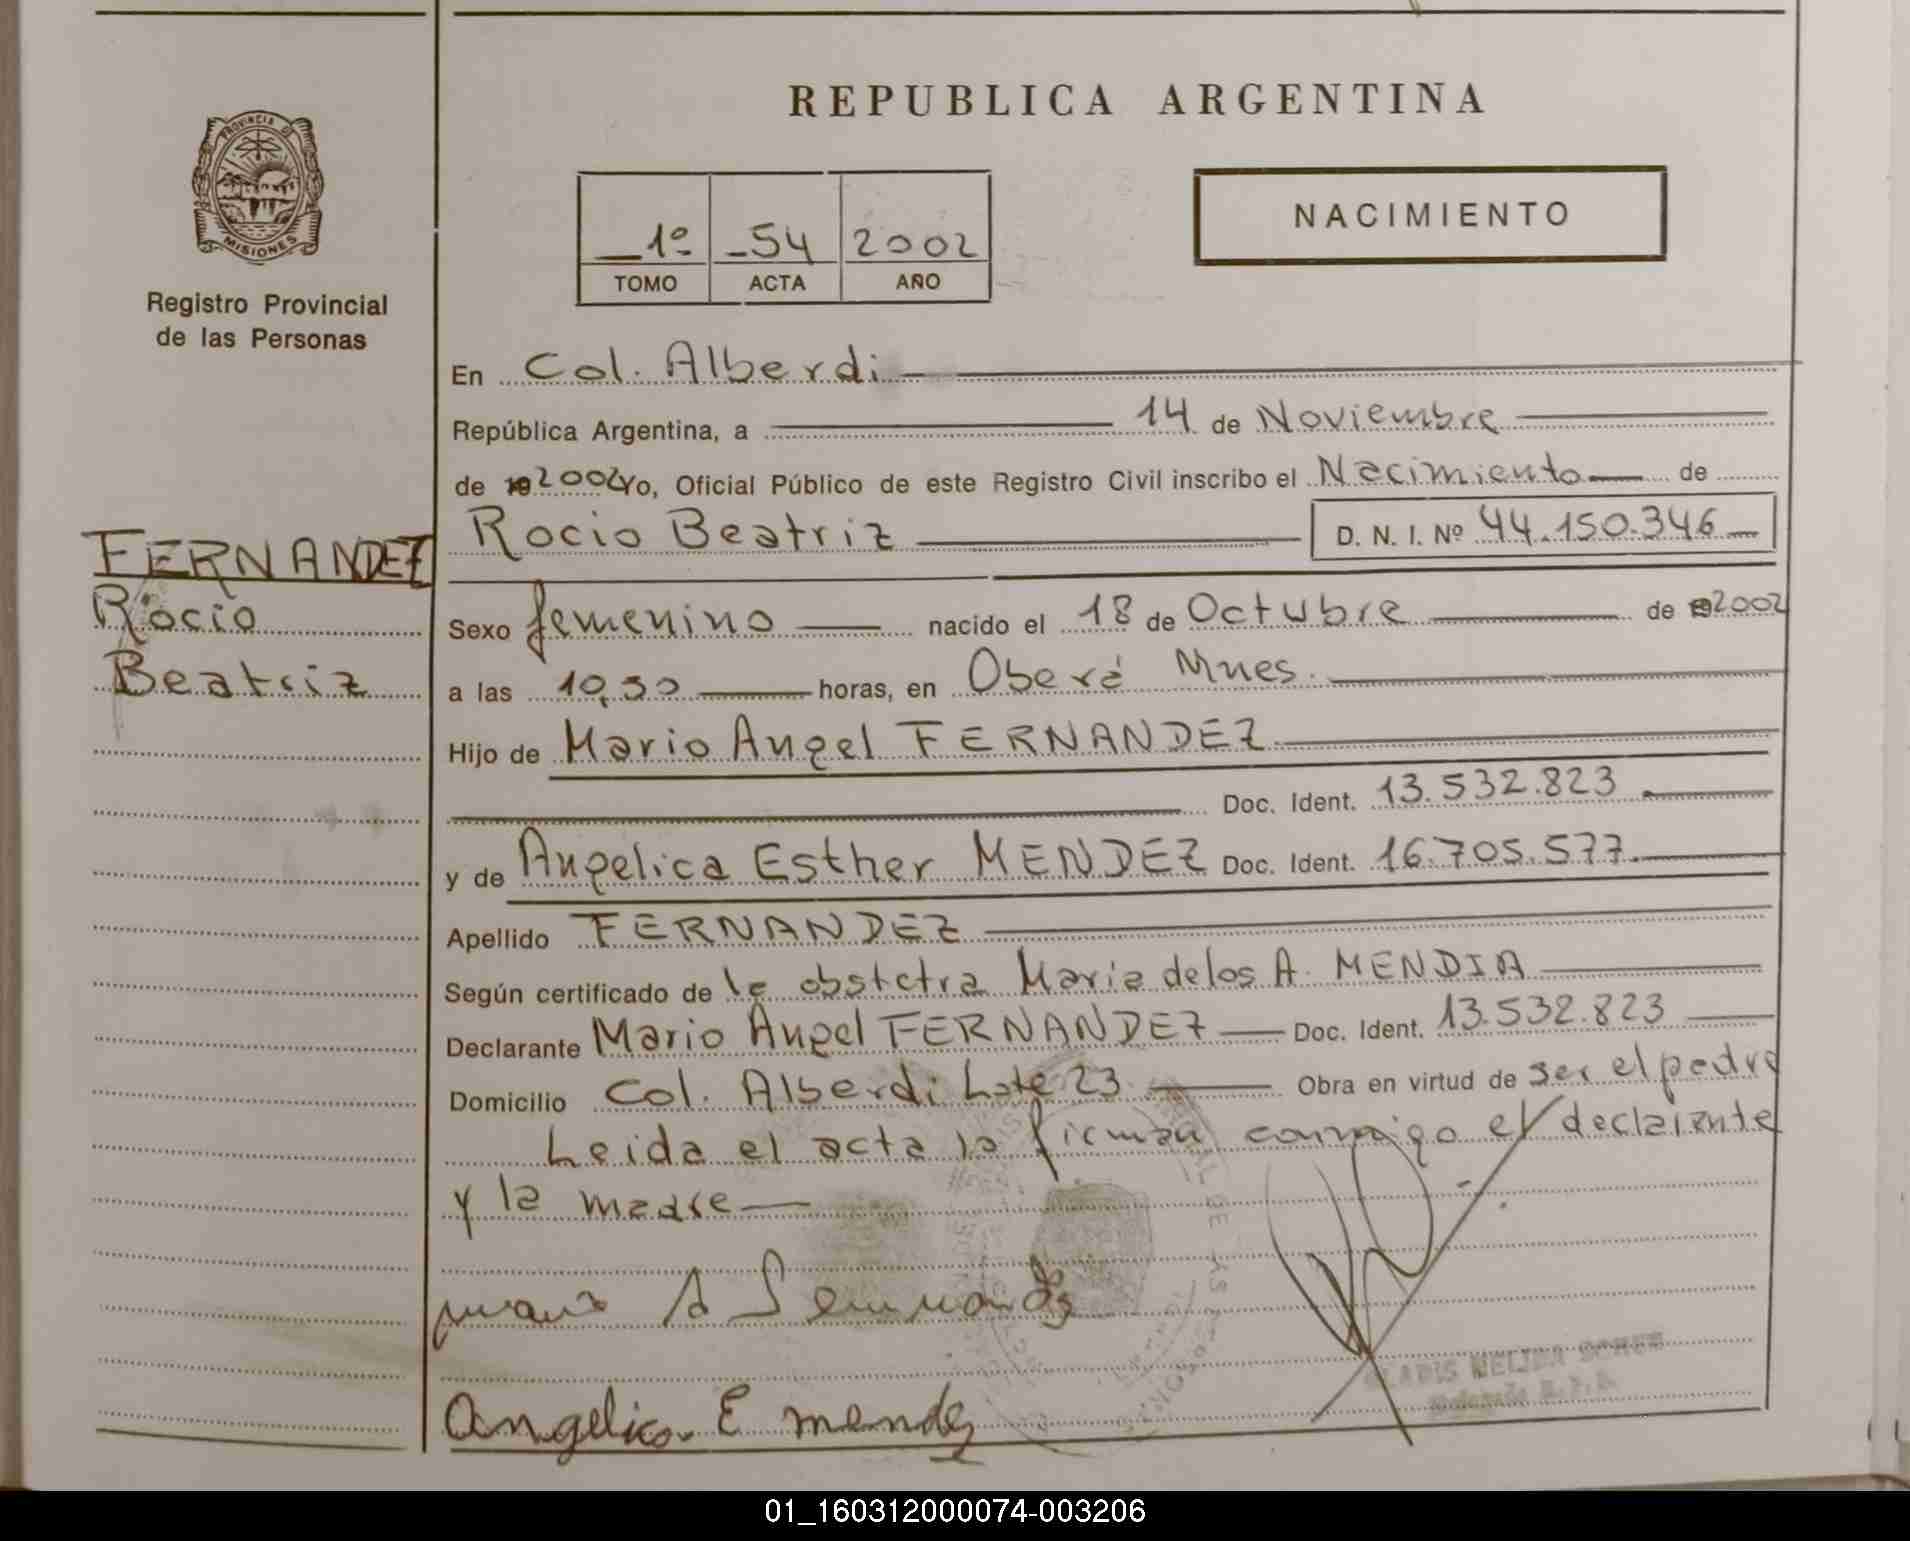 REPUBLICA ARGENTINA
PROVINCIA DE
MISIONES
Registro Provincial
de las Personas
1º 54 2002
TOMO ACTA AÑO
NACIMIENTO
En Col. Alberdi
República Argentina, a 14 de Noviembre
de 2002 Yo, Oficial Público de este Registro Civil inscribo el Nacimiento de
Rocio Beatriz D. N. I. Nº 44.150.346
FERNANDEZ
Rocio
Beatriz
Sexo femenino nacido el 18 de Octubre de 2002
a las 10,30 horas, en Oberá Mnes.
Hijo de Mario Angel FERNANDEZ
Doc. Ident. 13.532.823
y de Angelica Esther MENDEZ Doc. Ident. 16.705.577.
Apellido FERNANDEZ
Según certificado de la obstetra Maria de los A. MENDIA
Declarante Mario Angel FERNANDEZ Doc. Ident. 13.532.823
Domicilio Col. Alberdi Lote 23 Obra en virtud de ser el padre
Leida el acta la firman conmigo el declarante
y la madre
Angelica E mendez
01_160312000074-003206